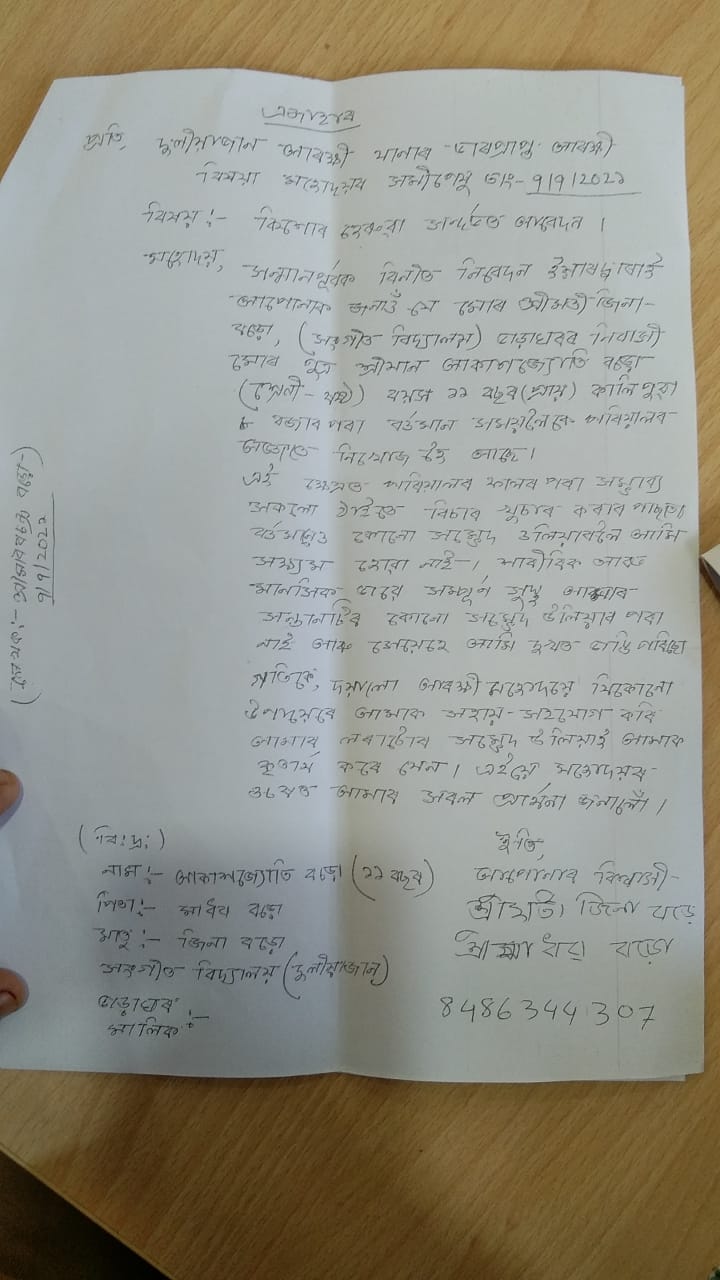 এজাহাৰ
প্ৰতি, দুলীয়াজান আৰক্ষী থানাৰ ভাৰপ্ৰাপ্ত আৰক্ষী
বিষয়া মহোদয়ৰ সমীপেষু তাং- 9/9/2022
বিষয়:- কিশোৰ হেৰুৱা সন্দৰ্ভত আবেদন।
মহোদয়,
সন্মানপূৰ্বক বিনীত নিবেদন ইয়াৰদ্বাৰাই
আপোনাক জনাওঁ যে মোৰ শ্ৰীমতী জিনা-
বড়ো, (সংগীত বিদ্যালয়) ভাড়াঘৰৰ নিবাসী
মোৰ পুত্ৰ শ্ৰীমান আকাশজ্যোতি বড়ো
(শ্ৰেণী - ষষ্ঠ) বয়স ১১ বছৰ (প্ৰায়) কালি পুৱা
৮ বজাৰ পৰা বৰ্তমান সময়লৈকে পৰিয়ালৰ
অজ্ঞাতে নিখোজ হৈ আছে।
এই ক্ষেত্ৰত পৰিয়ালৰ ফালৰ পৰা সম্ভাব্য
সকলো ঠাইতে বিচাৰ খুচাৰ কৰাৰ পাছতো
বৰ্তমানেও কোনো সম্ভেদ উলিয়াবলৈ আমি
সক্ষম হোৱা নাই। শাৰীৰিক আৰু
মানসিক ভাৱে সম্পূৰ্ণ সুস্থ আমাৰ
সন্তানটিৰ কোনো সম্ভেদ উলিয়াব পৰা
নাই আৰু সেয়েহে আমি দুখত ভাগি পৰিছো
গতিকে, দয়ালো আৰক্ষী মহোদয়ে যিকোনো
উপায়েৰে আমাক সহায়-সহযোগ কৰি
আমাৰ লৰাটোৰ সম্ভেদ উলিয়াই আমাক
কৃতাৰ্থ কৰে যেন। এইয়ে মহোদয়ৰ
ওচৰত আমাৰ সৰল প্ৰাৰ্থনা জনালোঁ।
(বি:দ্ৰ:)
নাম:- আকাশজ্যোতি বড়ো (১১ বছৰ)
পিতা:- মাধৱ বড়ো
মাতৃ:- জিনা বড়ো
সংগীত বিদ্যালয় (দুলীয়াজান)
ভাড়াঘৰ
মালিক:-
ইতি,
আপোনাৰ বিশ্বাসী-
শ্ৰীমতী জিনা বড়ো
শ্ৰী মাধৱ বড়ো
8486344307
9/9/2022